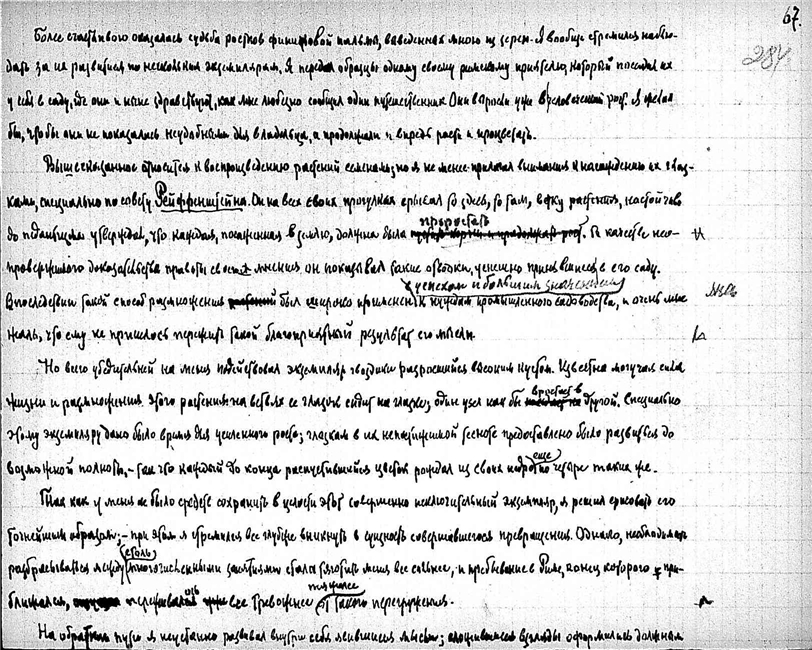 67.
284
Более счастливого оказалась судьба ростков финиковой пальмы, выведенных мною из зерен. Я вообще стремился наблю-
дать за их развитием по нескольким экземплярам. Я передал образцы одному своему римскому приятелю, который посадил их
у себя в саду, где они и ныне здравствуют, как мне любезно сообщил один путешественник. Они выросли уже в человеческий рост. Я желал
бы, чтобы они не показались неудобными для владельца, а продолжали и впредь расти и процветать.
Вышесказанное относится к воспроизведению растений семенами; но я не менее прилагал внимания к насаждению их глаз-
ками, специально по совету Рейффенштейна. Он на всех своих прогулках срывал то здесь, то там, ветку растения, настойчиво
до педантизма утверждая, что каждая, посаженная в землю, должна была прорастать. В качестве нео-
провержимого доказательства правоты своего мнения он показывал такие отводки, успешно принявшиеся в его саду.
Впоследствии такой способ размножения был с успехом и большим значением широко применен к нуждам промышленного садоводства, и очень мне
жаль, что ему не пришлось пережить такой благоприятный результат его мысли.
Но всего убедительней на меня подействовал экземпляр гвоздики разросшийся высоким кустом. Известна могучая сила
жизни и размножения этого растения; на ветвях ее глазок сидит на глазке; один узел как бы врастает в другой. Специально
этому экземпляру дано было время для усиленного роста; глазкам в их непостижимой тесноте предоставлено было развиться до
возможной полноты, – так что каждый до конца распустившийся цветок рождал из своих недр еще четыре таких же.
Так как у меня не было средств сохранить в целости этот совершенно исключительный экземпляр, я решил срисовать его
точнейшим образом; – при этом я стремился все глубже вникнуть в сущность совершавшегося превращения. Однако, необходимость
разбрасываться между столь многочисленными занятиями стала тяготить меня все сильнее, и пребывание в Риме, конец которого при-
ближался, переживалось все тревожнее и тяжелее от такого перегружения.
На обратном пути я неустанно развивал внутри себя явившиеся мысли; сложившиеся взгляды оформились должным